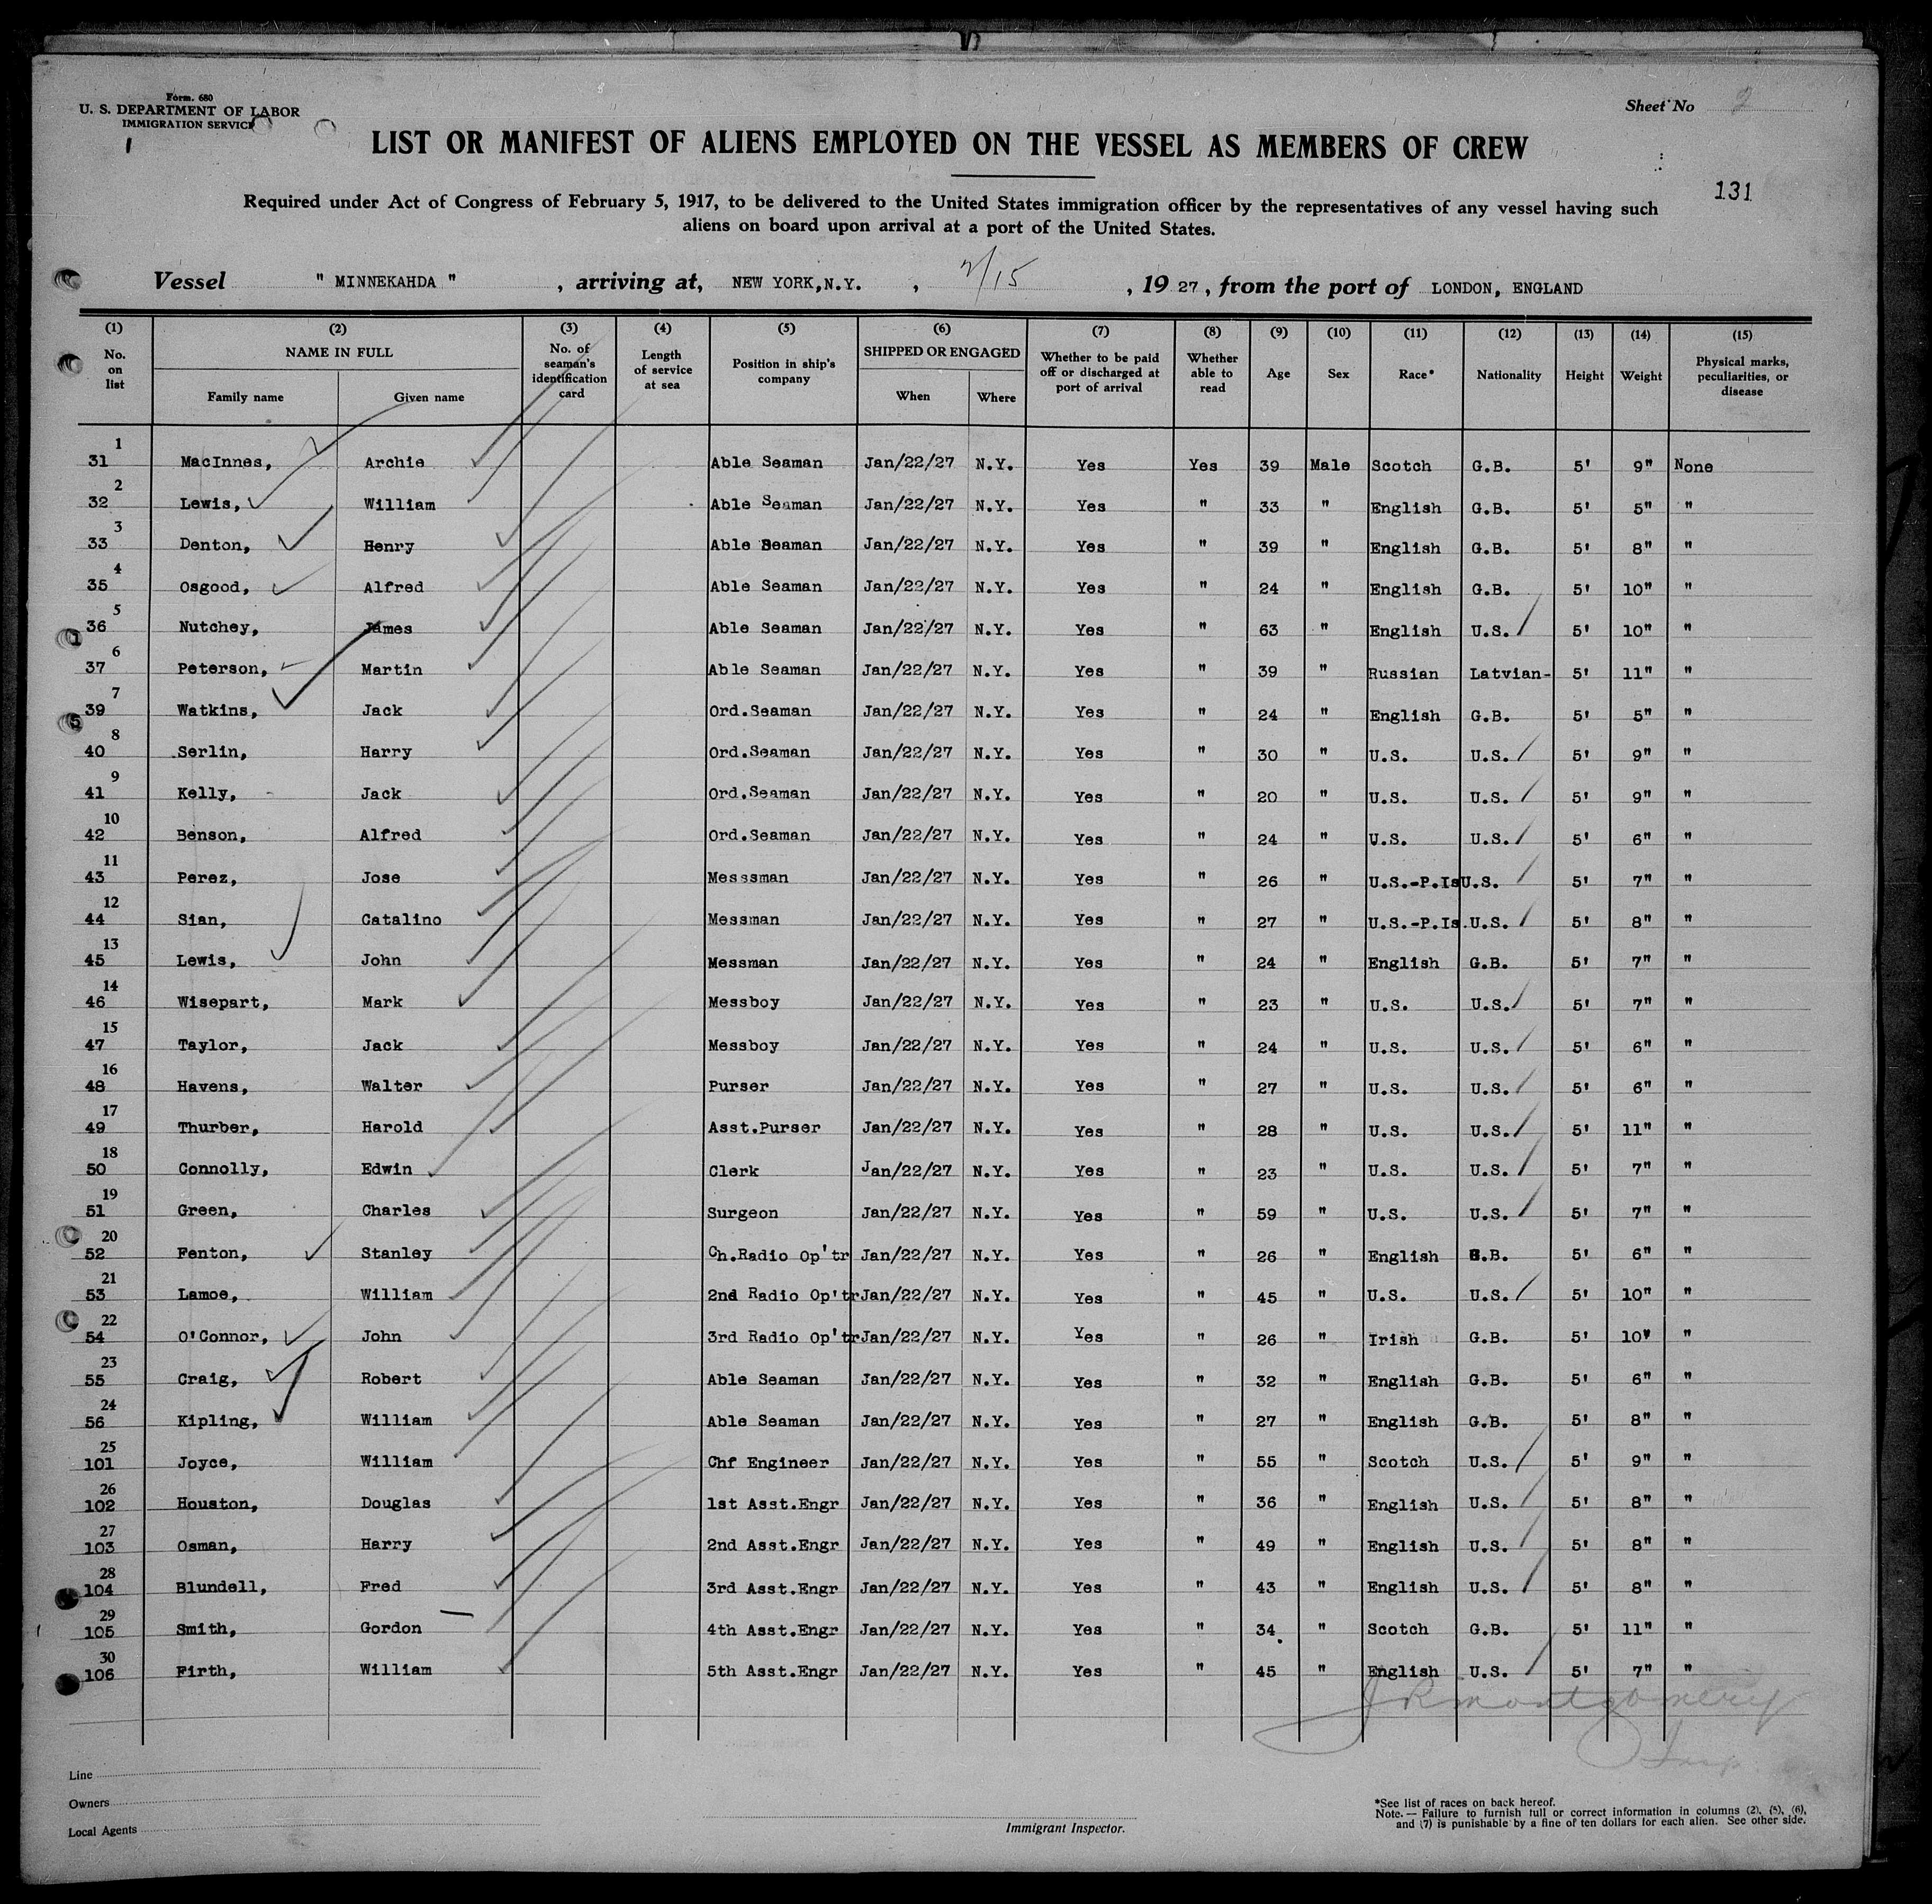 Form. 680
U. S. DEPARTMENT OF LABOR
IMMIGRATION SERVICE
Sheet No 2
LIST OR MANIFEST OF ALIENS EMPLOYED ON THE VESSEL AS MEMBERS OF CREW
131
Required under Act of Congress of February 5, 1917, to be delivered to the United States immigration officer by the representatives of any vessel having such
aliens on board upon arrival at a port of the United States.
Vessel " MINNEKAHDA " , arriving at, NEW YORK,N.Y. , 2/15 , 19 27 , from the port of LONDON, ENGLAND
(1) (2) (3) (4) (5) (6) (7) (8) (9) (10) (11) (12) (13) (14) (15)
No. on list NAME IN FULL Family name Given name No. of seaman's identification card Length of service at sea Position in ship's company SHIPPED OR ENGAGED When Where Whether to be paid off or discharged at port of arrival Whether able to read Age Sex Race* Nationality Height Weight Physical marks, peculiarities, or disease
1
31 MacInnes, Archie Able Seaman Jan/22/27 N.Y. Yes Yes 39 Male Scotch G.B. 5' 9" None
2
32 Lewis, William Able Seaman Jan/22/27 N.Y. Yes " 33 " English G.B. 5' 5" "
3
33 Denton, Henry Able Seaman Jan/22/27 N.Y. Yes " 39 " English G.B. 5' 8" "
4
35 Osgood, Alfred Able Seaman Jan/22/27 N.Y. Yes " 24 " English G.B. 5' 10" "
5
36 Nutchey, James Able Seaman Jan/22/27 N.Y. Yes " 63 " English U.S. 5' 10" "
6
37 Peterson, Martin Able Seaman Jan/22/27 N.Y. Yes " 39 " Russian Latvian- 5' 11" "
7
39 Watkins, Jack Ord.Seaman Jan/22/27 N.Y. Yes " 24 " English G.B. 5' 5" "
8
40 Serlin, Harry Ord.Seaman Jan/22/27 N.Y. Yes " 30 " U.S. U.S. 5' 9" "
9
41 Kelly, Jack Ord.Seaman Jan/22/27 N.Y. Yes " 20 " U.S. U.S. 5' 9" "
10
42 Benson, Alfred Ord.Seaman Jan/22/27 N.Y. Yes " 24 " U.S. U.S. 5' 6" "
11
43 Perez, Jose Messsman Jan/22/27 N.Y. Yes " 26 " U.S.-P.Is U.S. 5' 7" "
12
44 Sian, Catalino Messman Jan/22/27 N.Y. Yes " 27 " U.S.-P.Is. U.S. 5' 8" "
13
45 Lewis, John Messman Jan/22/27 N.Y. Yes " 24 " English G.B. 5' 7" "
14
46 Wisepart, Mark Messboy Jan/22/27 N.Y. Yes " 23 " U.S. U.S. 5' 7" "
15
47 Taylor, Jack Messboy Jan/22/27 N.Y. Yes " 24 " U.S. U.S. 5' 6" "
16
48 Havens, Walter Purser Jan/22/27 N.Y. Yes " 27 " U.S. U.S. 5' 6" "
17
49 Thurber, Harold Asst.Purser Jan/22/27 N.Y. Yes " 28 " U.S. U.S. 5' 11" "
18
50 Connolly, Edwin Clerk Jan/22/27 N.Y. Yes " 23 " U.S. U.S. 5' 7" "
19
51 Green, Charles Surgeon Jan/22/27 N.Y. Yes " 59 " U.S. U.S. 5' 7" "
20
52 Fenton, Stanley Ch.Radio Op'tr Jan/22/27 N.Y. Yes " 26 " English G.B. 5' 6" "
21
53 Lamoe, William 2nd Radio Op'tr Jan/22/27 N.Y. Yes " 45 " U.S. U.S. 5' 10" "
22
54 O'Connor, John 3rd Radio Op'tr Jan/22/27 N.Y. Yes " 26 " Irish G.B. 5' 10" "
23
55 Craig, Robert Able Seaman Jan/22/27 N.Y. Yes " 32 " English G.B. 5' 6" "
24
56 Kipling, William Able Seaman Jan/22/27 N.Y. Yes " 27 " English G.B. 5' 8" "
25
101 Joyce, William Chf Engineer Jan/22/27 N.Y. Yes " 55 " Scotch U.S. 5' 9" "
26
102 Houston, Douglas 1st Asst.Engr Jan/22/27 N.Y. Yes " 36 " English U.S. 5' 8" "
27
103 Osman, Harry 2nd Asst.Engr Jan/22/27 N.Y. Yes " 49 " English U.S. 5' 8" "
28
104 Blundell, Fred 3rd Asst.Engr Jan/22/27 N.Y. Yes " 43 " English U.S. 5' 8" "
29
105 Smith, Gordon 4th Asst.Engr Jan/22/27 N.Y. Yes " 34 " Scotch G.B. 5' 11" "
30
106 Firth, William 5th Asst.Engr Jan/22/27 N.Y. Yes " 45 " English U.S. 5' 7" "
JR Montgomery
Insp.
Line
Owners
Local Agents
Immigrant Inspector.
*See list of races on back hereof.
Note.— Failure to furnish full or correct information in columns (2), (5), (6),
and (7) is punishable by a fine of ten dollars for each alien. See other side.